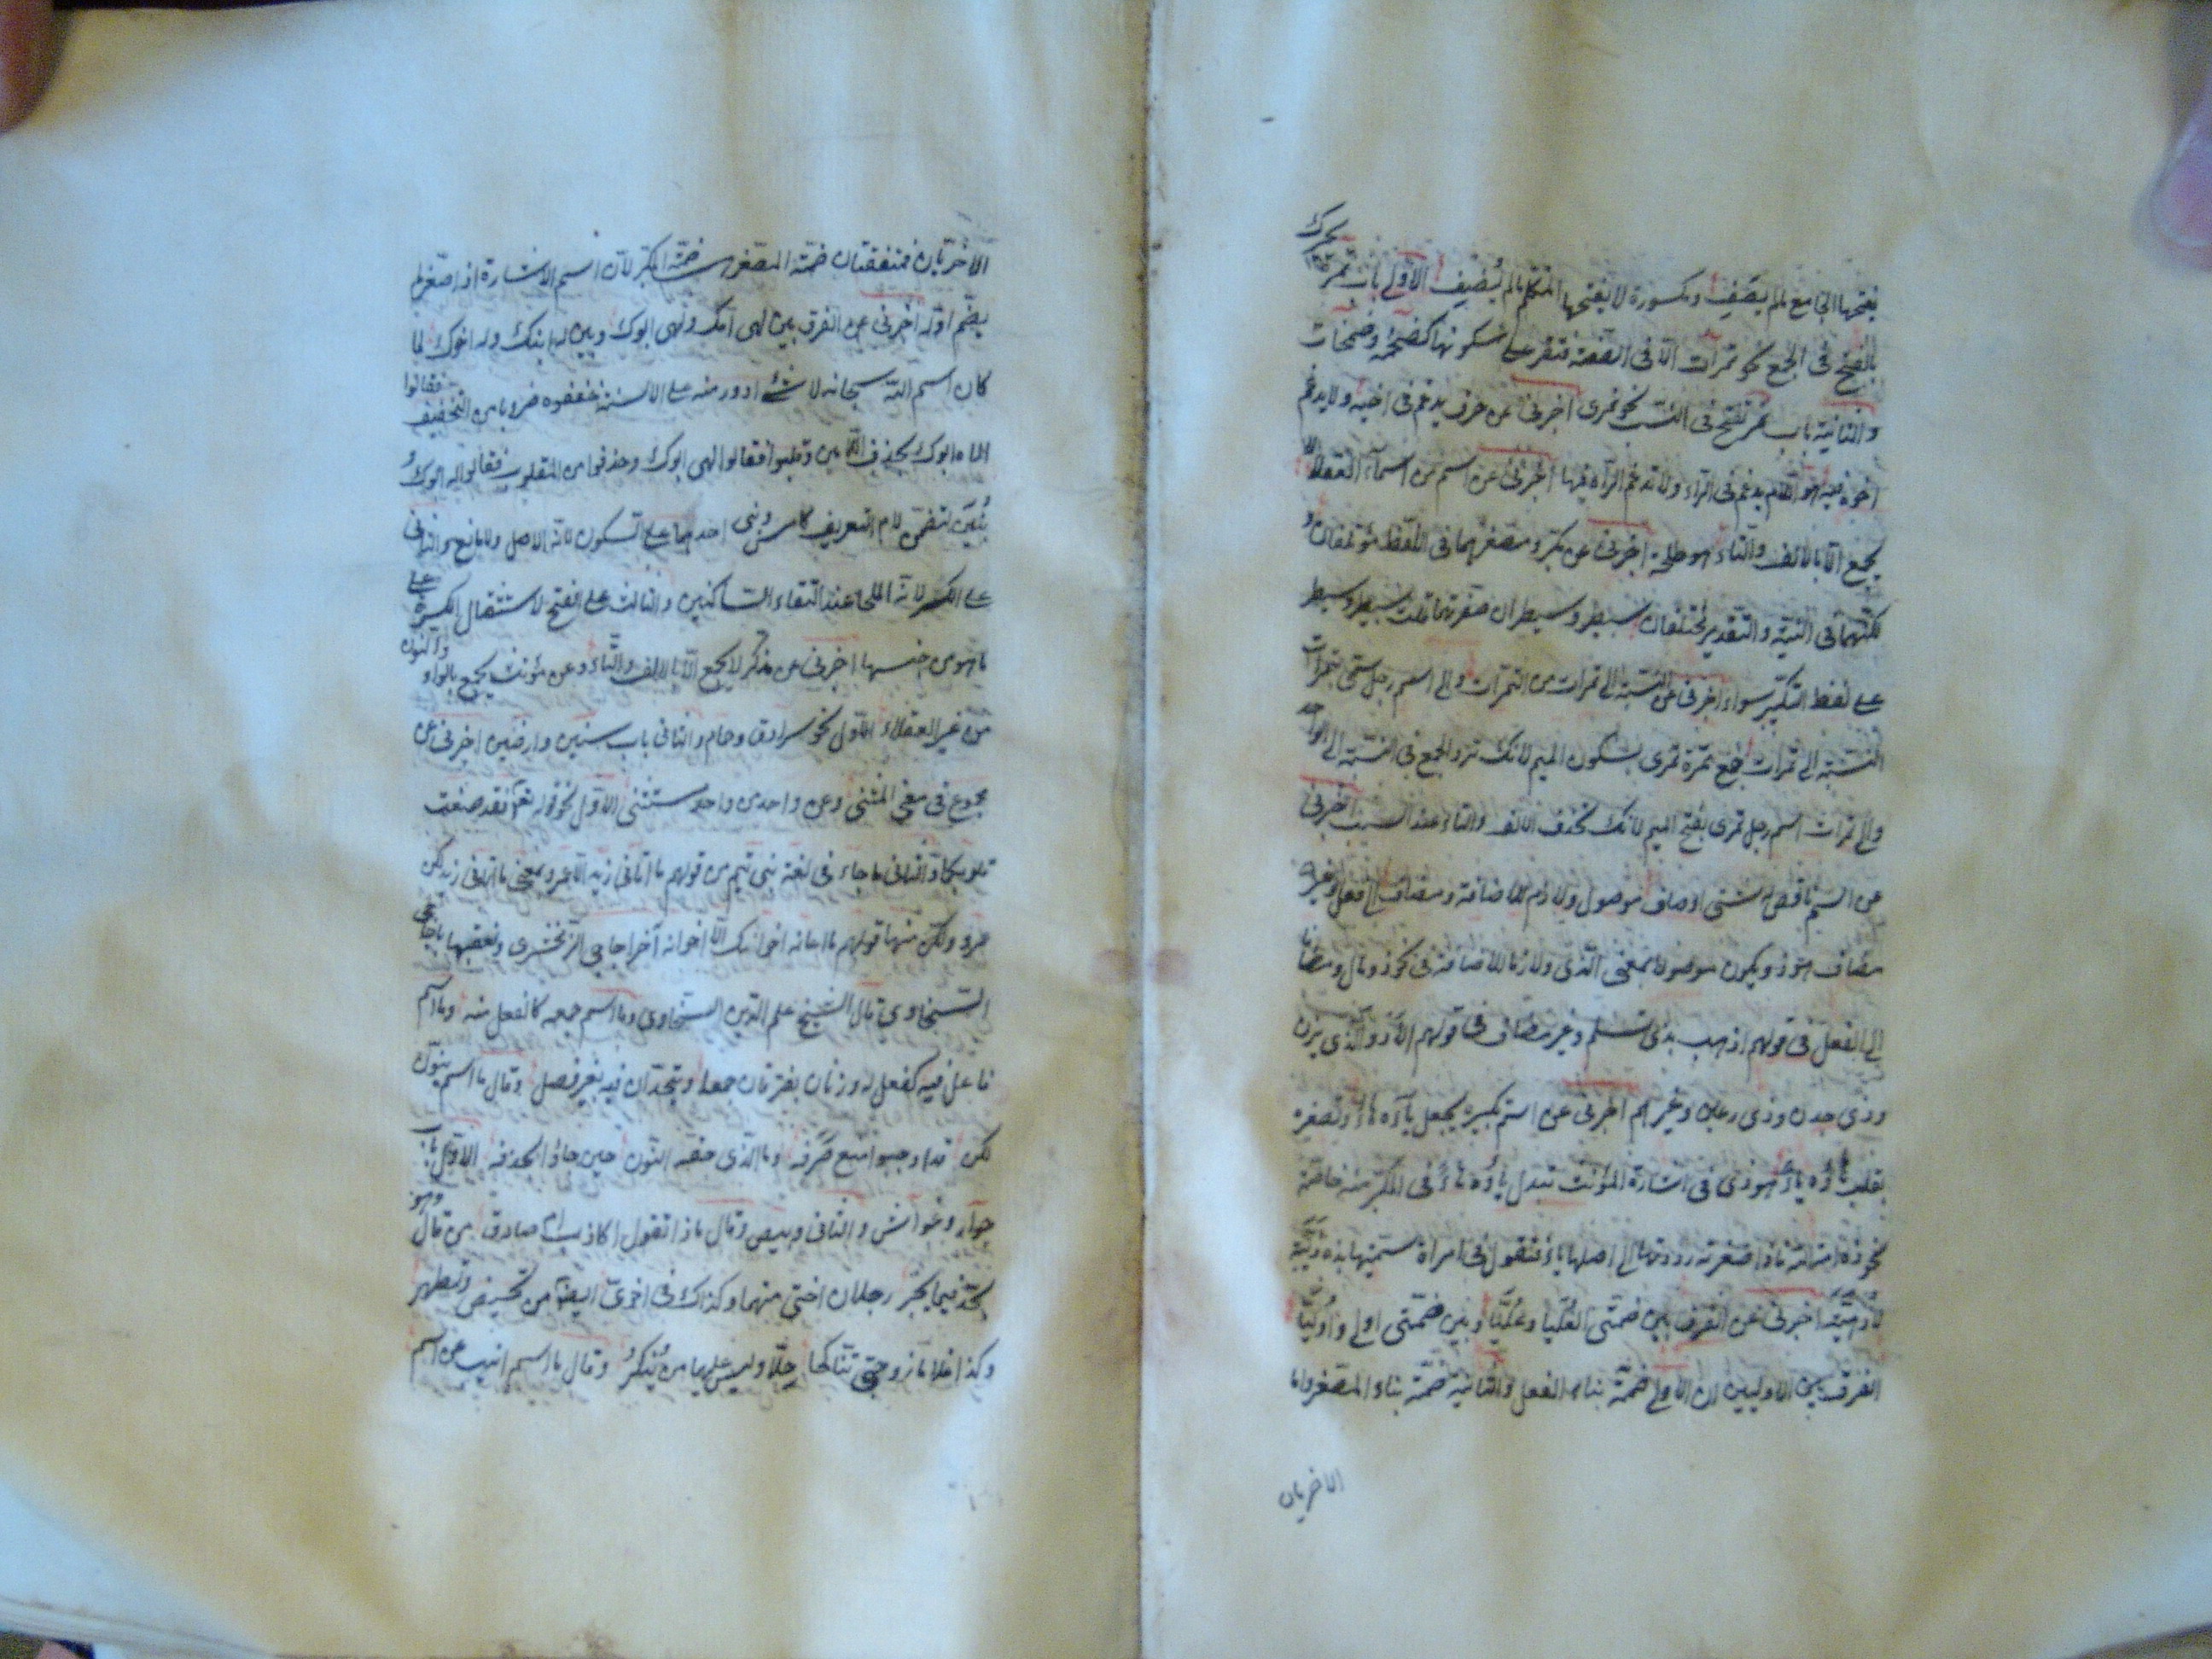 يفتحها الجامع ما لم يصف ومكسورة لا يفتحها المتكلم ما لم يضيف الاولى باب تمرة يحرك
بالفتح في الجمع نحو تمرات الا في الصفة فتقر على سكونها كضخمة وضخمات
والثانية باب نمر تفتح في النسب نحو نمري اخبرني عن حرف يدغم في اخيه ولا يدغم
اخوه فيه هو اللام يدغم في الراء ولا تدغم الراء فيها اخبرني عن اسم من اسماء العقلا لا
يجمع الا بالالف والتاء هو طلحة اخبرني عن مكبر ومصغر هما في اللفظ مؤتلفان و
لكنهما في النية والتقدير مختلفان مسيطر ومسيطر ان صغرتهما قلت مسيطر ومسيطر
على لفظ التكبير سواء اخبرني عن النسبة الى تمرات من التمرات والى اسم رجل سمي بتمرات
النسبة الى تمرات جمع تمرة تمري بسكون الميم لانك ترد الجمع في النسبة الى الواحد
والى تمرات اسم رجل تمري بفتح الميم لانك تحذف الالف والتاء عند النسب اخبرني
عن اسم ناقص له شتى اوصاف موصول ولازم للاضافة ومضاف الى فعل وغير
مضاف هو ذو ويكون موصولا بمعنى الذي ولازما للاضافة في نحو ذو مال ومضافا
الى الفعل في قولهم اذهب بذي تسلم وغير مضاف في قولهم الاذواء لذي يزن
وذي جدن وذي رعين وغيرهم اخبرني عن اسم تكبيره يجعل ياءه هاء وتصغيره
يقلب هاؤه ياء هو ذي في اشارة المؤنث تبدل ياؤه هاء في المكبر منه خاصة
نحو ذه امة الله فاذا صغرته رددتها الى اصلها ياء فتقول في امراة سميتها بذه ذيية
لا ذهية اخبرني عن الفرق بين ضمتي العليا وعليا وبين ضمتي اولى واوليا
الفرق بين الاوليين ان الاولى ضمة بناء الفعل والثانية ضمة بناء المصغر واما
الاخريان
الاخريان فمتفقتان ضمة المصغر ضمة المكبر لان اسم الاشارة اذا صغر لم
يضم اوله اخبرني عن الفرق بين لهي امك ولهى ابوك وبين له ابنك وله اخوك لما
كان اسم الله سبحانه لا شئ ادور منه على الالسنة خففوه ضروبا من التخفيف فقالوا
لاه ابوك بحذف اللامين وقلبوا فقالوا لهي ابوك وحذفوا من المقلوب فقالوا له ابوك و
بنين لتضمن لام التعريف كامس وبني احدهما على السكون لانه الاصل ولا مانع والثاني
على الكسر لانه الملجا عند التقاء الساكنين والثالث على الفتح لاستثقال الكسرة على
ما هو من جنسها اخبرني عن مذكر لا يجمع الا بالالف والتاء وعن مؤنث يجمع بالواو والنون
من غير العقلاء الاول نحو سرادق وحمام والثاني باب سنين وارضين اخبرني عن
مجموع في معنى المثنى وعن واحد من واحد مستثنى الاول نحو قوله تعالى فقد صغت
قلوبكما والثاني ما جاء في لغة بني تميم من قولهم ما اتاني زيد الا عمرو بمعنى ما اتاني زيد لكن
عمرو ولكن منها قولهم ما اعانه اخوانك الا اخوانه آخر احاجي الزمخشري ونعقبها باحاجي
السخاوي قال الشيخ علم الدين السخاوي وما اسم جمعه كالفعل منه وما اسم
فاعل فيه كفعل له وزنان يفترقان جمعا ويتحدان فيه بغير فصل وقال ما اسم ينون
لكن قد اوجبوا منع صرفه وما الذي حقه النون حين جاؤا بحذفه الاول باب
جوار وغواش والثاني وبيص وقال ماذا تقول اكاذب ام صادق من قال وهو
يحد فيما يخبر رجلان اختي منهما وكذاك في اخوي ايضا من تحيض وتطهر
وكذا غلاما زوجتي تناكحا حلا وليس عليهما من ينكر وقال ما اسم انيب عن اسم